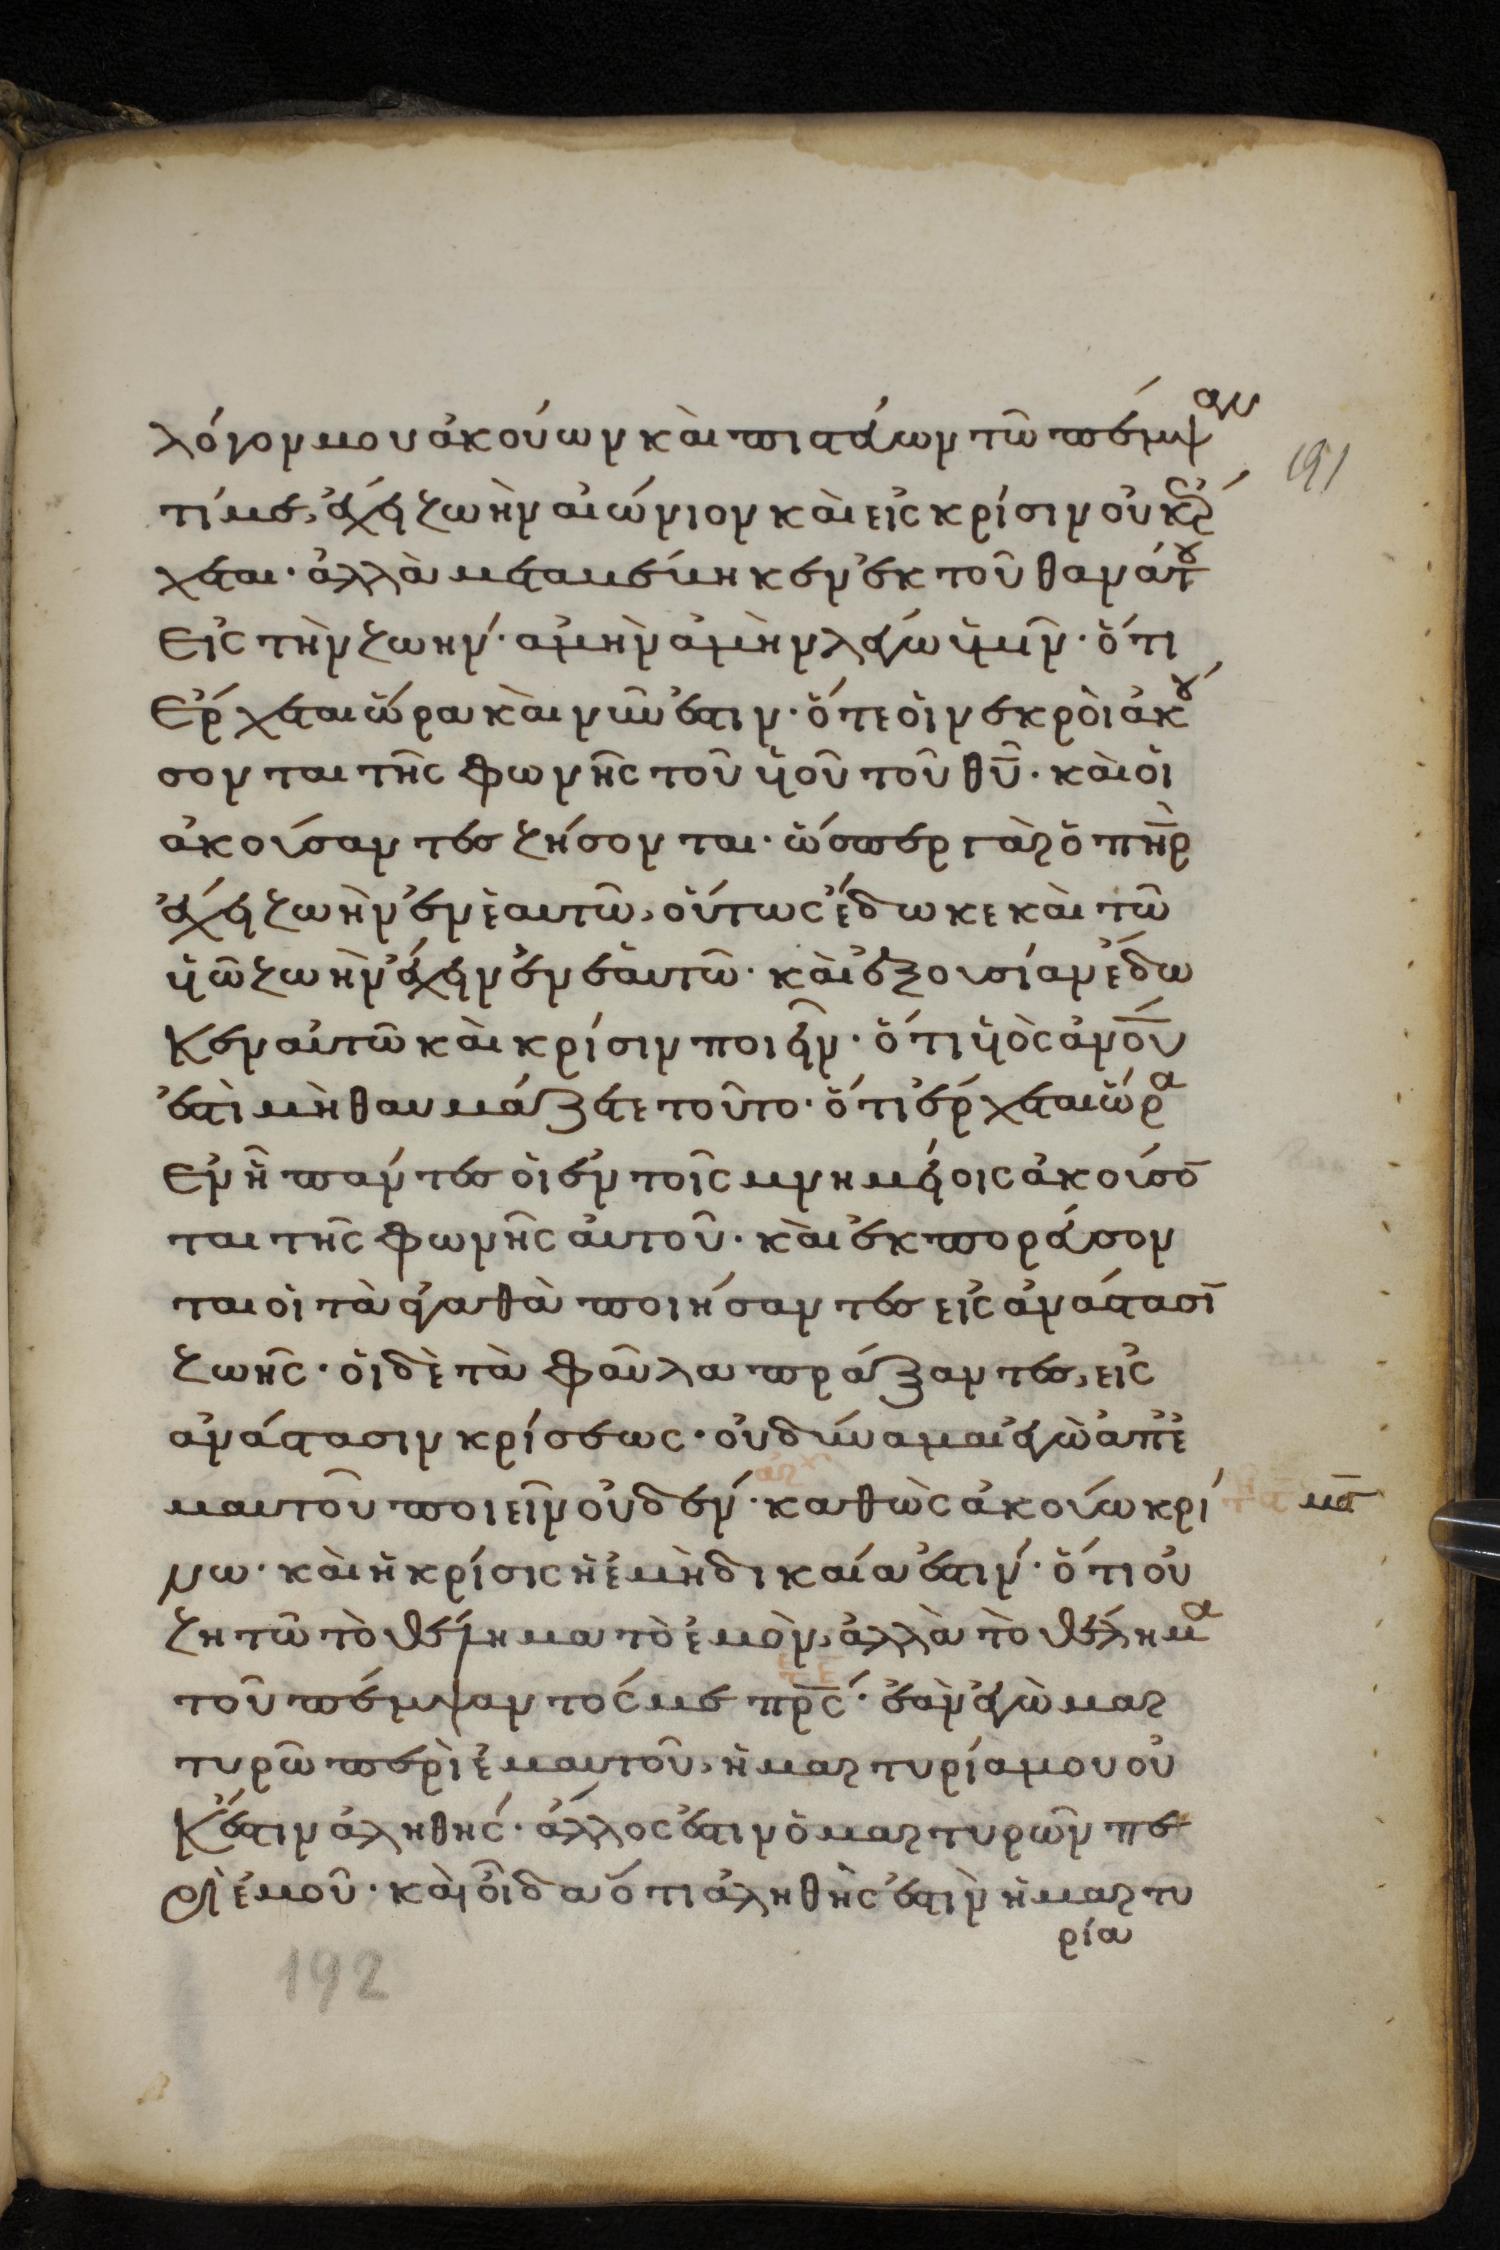 λόγον μου ἀκούων καὶ πιστεύων τῶ πέμψαν
191
τί με, ἔχει ζωὴν αἰώνιον καὶ εἰς κρίσιν οὐκ ἔρ
χεται· ἀλλὰ μεταβέβηκεν ἐκ τοῦ θανάτου
εἰς τὴν ζωήν· ἀμὴν ἀμὴν λέγω ὑμῖν· ὅτι
ἔρχεται ὥρα καὶ νῦν ἐστιν· ὅτε οἱ νεκροὶ ἀκού
σονται τῆς φωνῆς τοῦ υἱοῦ τοῦ θ̅υ̅· καὶ οἱ
ἀκούσαντες ζήσονται· ὥσπερ γὰρ ὁ π̅η̅ρ̅
ἔχει ζωὴν ἐν ἑαυτῶ, οὕτως ἔδωκε καὶ τῶ
υἱῶ ζωὴν ἔχειν ἐν ἑαυτῶ· καὶ ἐξουσίαν ἔδω
κεν αὐτῶ καὶ κρίσιν ποιεῖν· ὅτι υἱὸς α̅ν̅ο̅υ̅
ἐστὶ μὴ θαυμάζετε τοῦτο· ὅτι ἔρχεται ὥρα
ἐν ἧ πάντες οἱ ἐν τοῖς μνημείοις ἀκούσο̅
ται τῆς φωνῆς αὐτοῦ· καὶ ἐκπορεύσον
ται οἱ τὰ ἀγαθὰ ποιήσαντες εἰς ἀνάστασι̅
ζωῆς· οἱ δὲ τὰ φαῦλα πράξαντες, εἰς
ἀνάστασιν κρίσεως· οὐ δύναμαι ἐγὼ ἀπ' ἐ
μαυτοῦ ποιεῖν οὐδέν· καθὼς ἀκούω κρί
μα̅
νω· καὶ ἡ κρίσις ἡ ἐμὴ δικαία ἐστίν· ὅτι οὐ
ζητῶ τὸ θέλημα τὸ ἐμὸν, ἀλλὰ τὸ θέλημα
τοῦ πέμψαντός με π̅ρ̅ς̅· ἐὰν ἐγὼ μαρ
τυρῶ περὶ ἐμαυτοῦ, ἡ μαρτυρία μου οὐ
κ ἔστιν ἀληθής· ἄλλος ἐστιν ὁ μαρτυρῶν πε
ρὶ ἐμοῦ· καὶ οἶδα ὅτι ἀληθής ἐστὶν ἡ μαρτυ
ρία
192